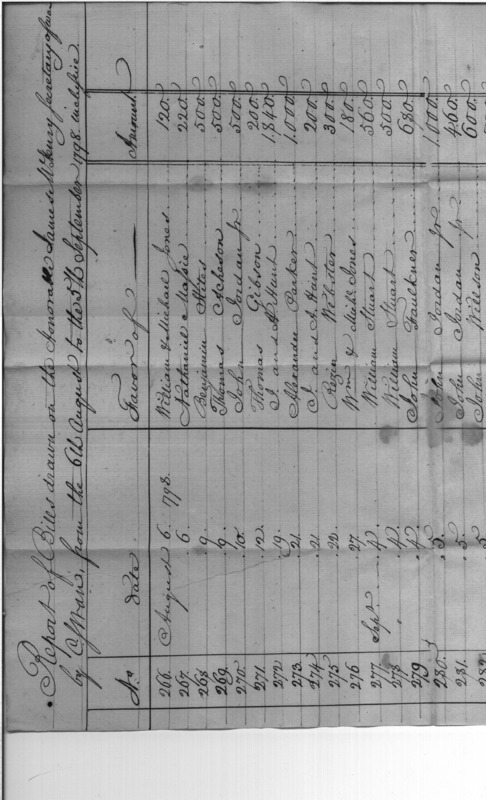 Report of Bills drawn on the Honorable James McHenry Secretary of war
by C. Swan, from the 6th August to the 5th September 1798. inclusive.
No. Date Favor of Amount
266. August 6. 1798. William & Michael Jones 120.
267. 6. Nathaniel Massie 220.
268 9. Benjamin Stites 500.
269. 9. Thomas Acheson 500.
270. 10. John Jordan Jr 500.
271. 12. Thomas Gibson 200.
272 19. J. and A. Hunt 1,840.
273. 21. Alexander Parker 1,000.
274 21. J. and A. Hunt 200.
275 22. Rezin Webster 300.
276 27. Wm & Michl Jones 180.
277 Sept. 4. William Stuart 560.
278 4. William Stuart 500.
279 4. John Faulkner 680.
280. 5. John Jordan Jr 1,000.
281. 5. John Jordan Jr 460.
282 5 John Willson 600.